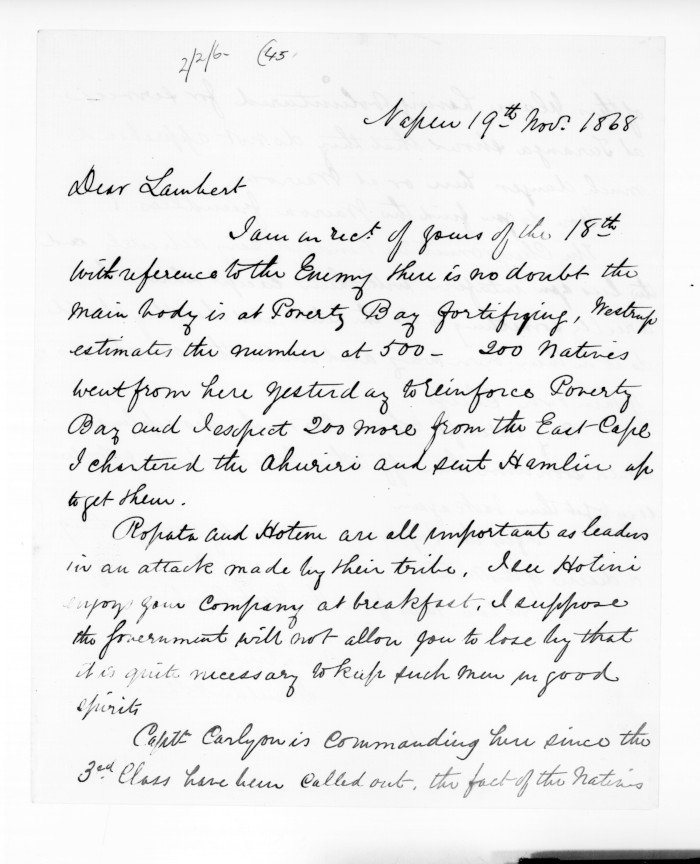 2/2/6- (45.
Napier 19th Novr. 1868
Dear Lambert
I am in rect. of yours of the 18th
with reference to the Enemy there is no doubt the
main body is at Poverty Bay fortifying, Westrup
estimates the number at 500 - 200 Natives
went from here yesterday to reinforce Poverty
Bay and I expect 200 more from the East Cape
I chartered the Ahuriri and sent Hamlin up
to get them.
Ropata and Hotene are all important as leaders
in an attack made by their tribe, I see Hotini
enjoys your Company at breakfast, I suppose
the Government will not allow you to lose by that
it is quite necessary to keep such men in good
spirits
Captn Carlyon is commanding here since the
3rd Class have been called out, the fact of the Natives